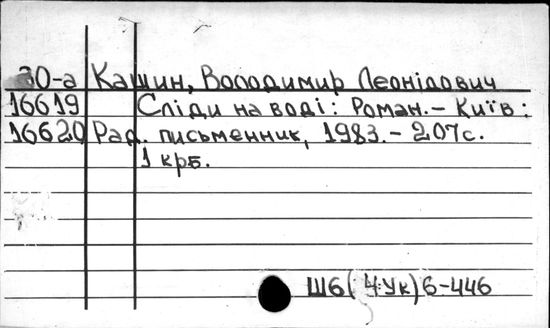 30-а Кашин, Володимир Леонідович
16619 Сліди на воді: Роман.- Київ:
16620 Рад. письменник, 1983.- 207с.
1 крб.
Ш6(4Ук)6-446